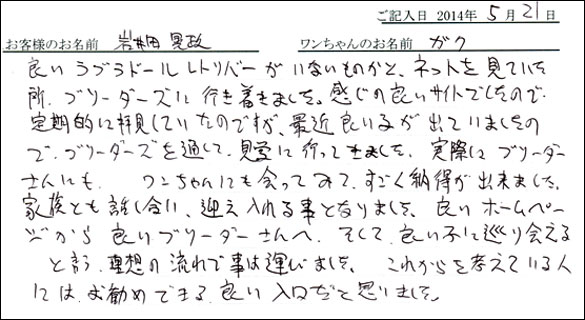 ご記入日 2014年 5月 21日
お客様のお名前 岩井田 寛政 ワンちゃんのお名前 ガク
良いラブラドールレトリバーがいないものかと、ネットを見ていた
所、ブリーダーズに行き着きました。感じの良いサイトでしたので、
定期的に拝見していたのですが、最近良い子が出ていましたの
で、ブリーダーズを通して、見学に行ってきました。実際にブリーダー
さんにも、ワンちゃんにも会ってみて、すごく納得が出来ました。
家族とも話し合い、迎え入れる事となりました。良いホームペー
ジから良いブリーダーさんへ、そして、良い子に巡り会える
と言う、理想の流れで事は運びました。これからを考えている人
には、お勧めできる、良い入口だと思いました。